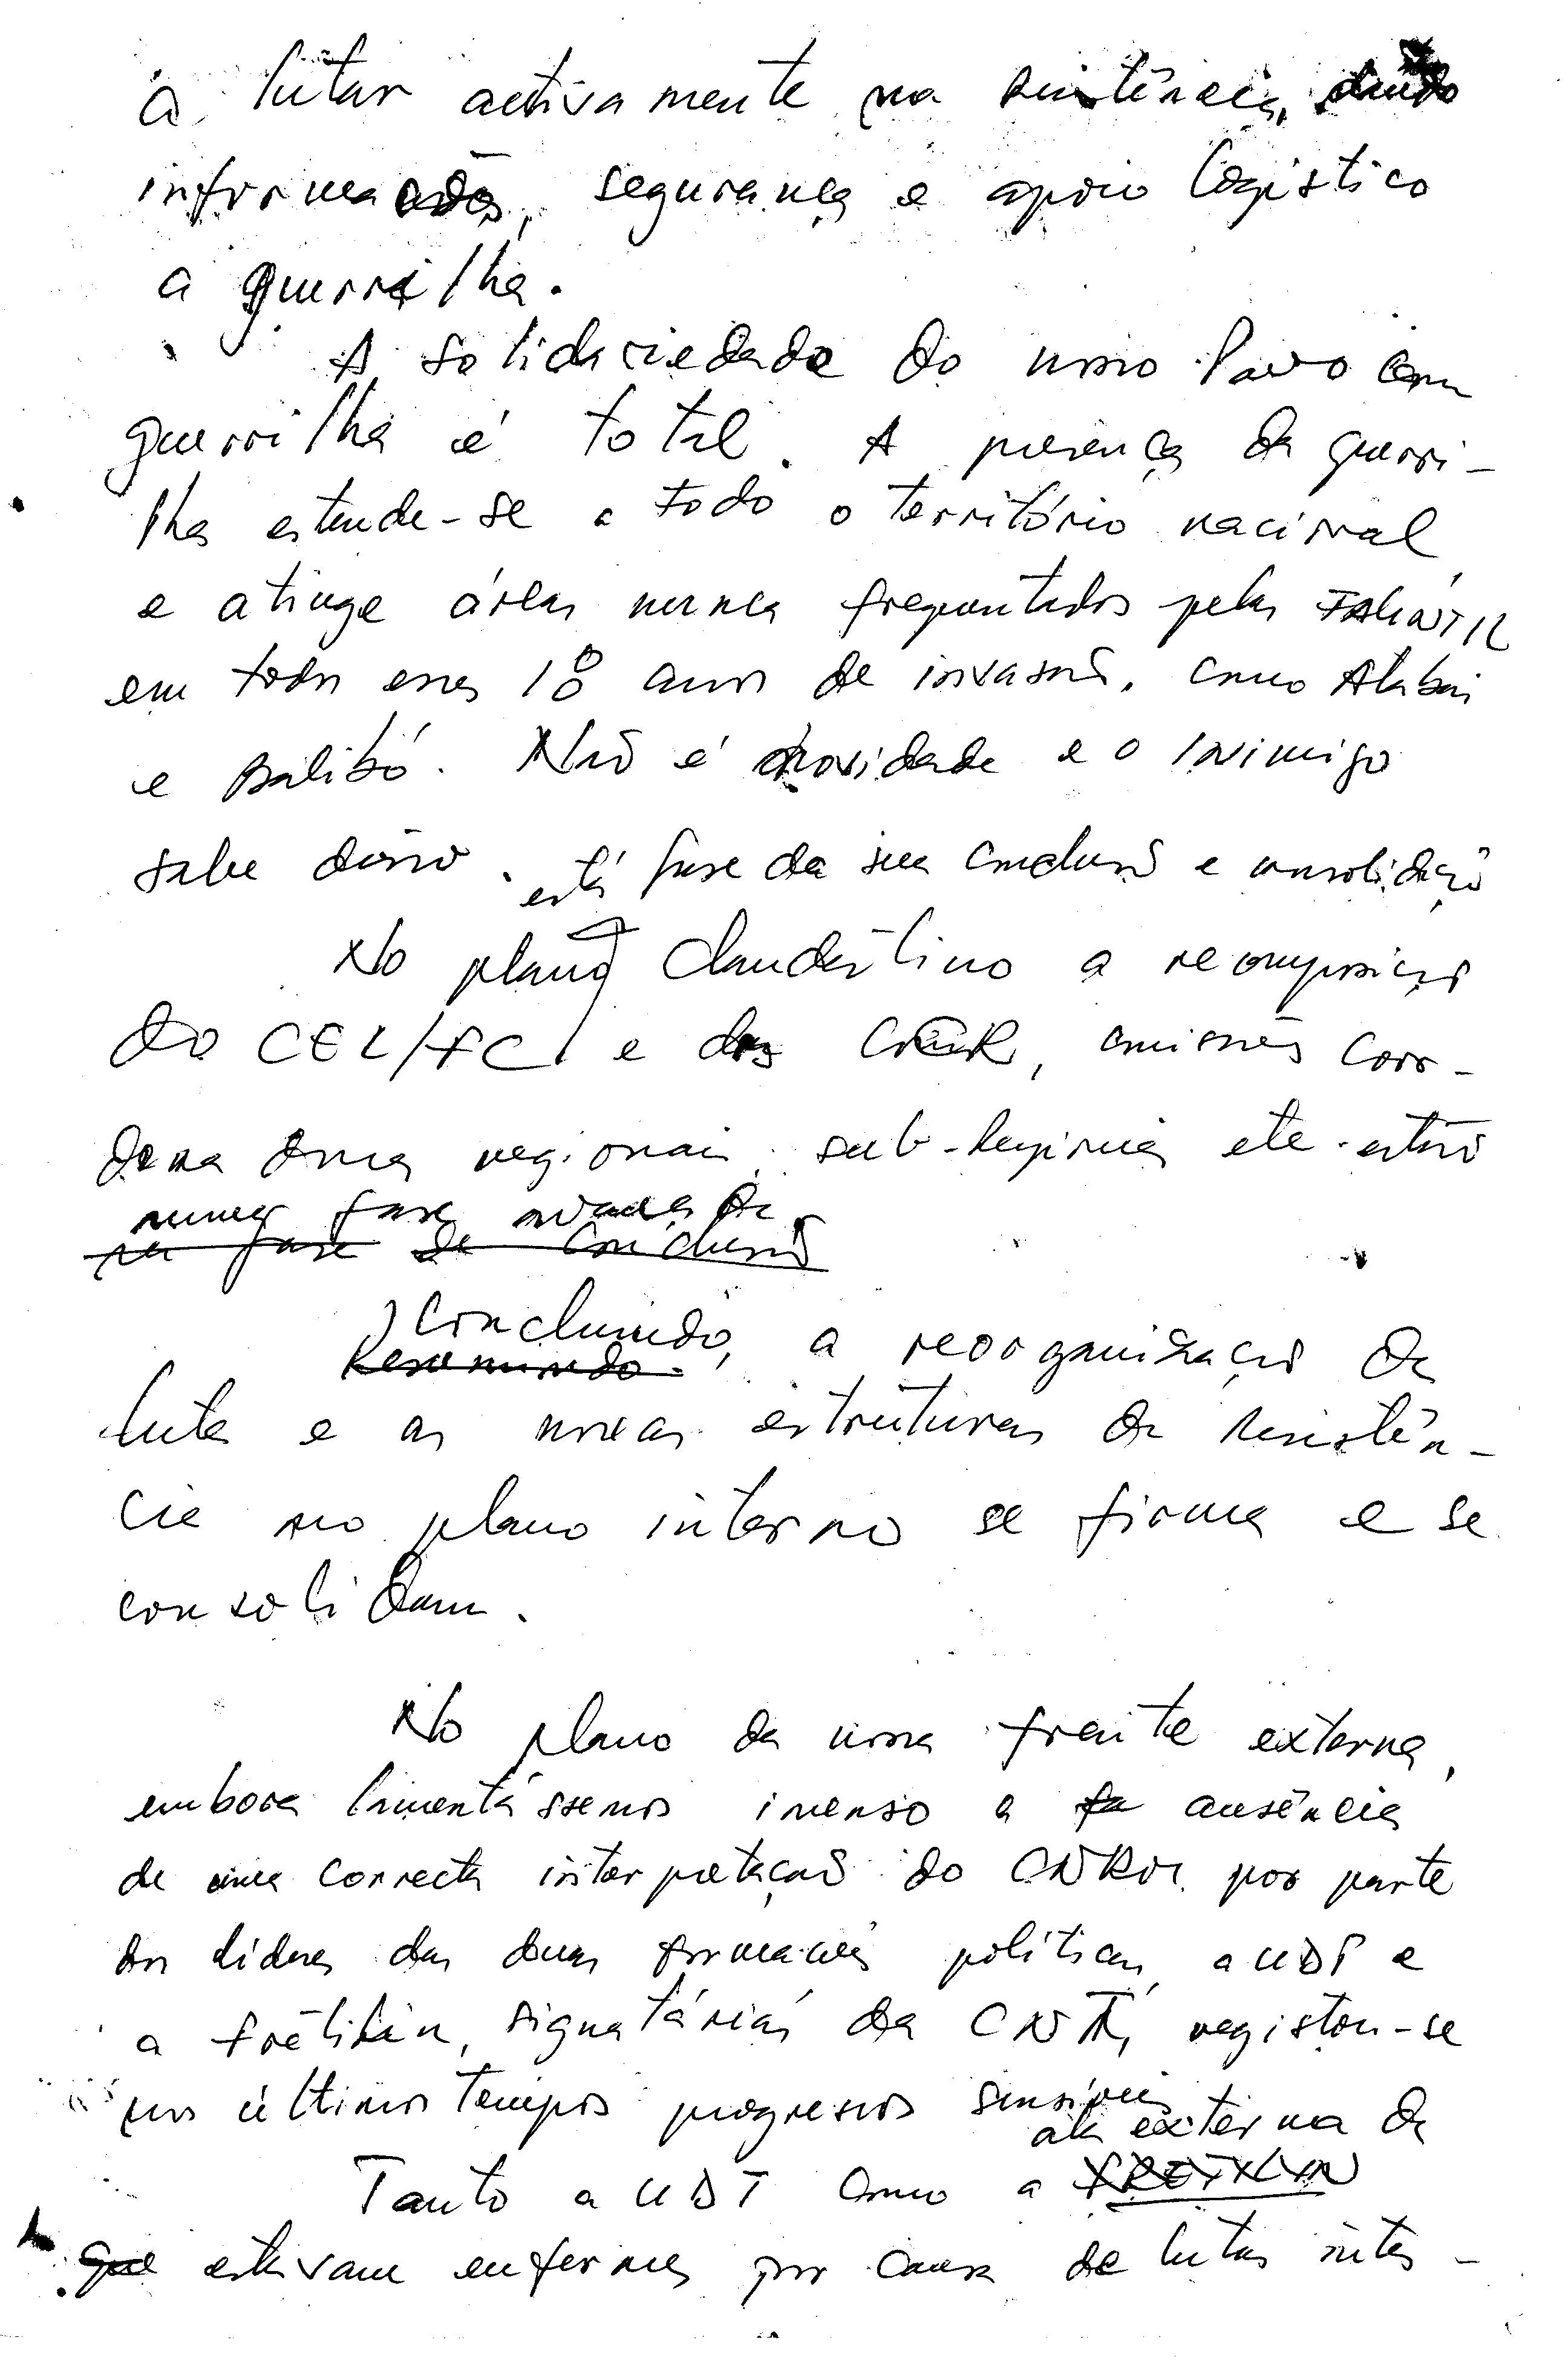 a lutar activamente na resistência, dando
informações, segurança e apoio logístico
a guerrilha.
A solidariedade do nosso Povo com
guerrilha é total. A presença da guerri-
lha estende-se a todo o território nacional
e atinge áreas nunca frequentados pelas FALINTIL
em todos esses 18 anos de invasão, como Atabai
e Balibó. Não é novidade e o inimigo
sabe disso.
está fase da sua conclusão e consolidação
No plano clandestino a recomposição
do CEL/FC e dos, comissões coor-
denadoras regionais, sub-regiões etc. estão
numa fase avançada
na fase de conclusão
Concluindo,
Resumindo. a reorganização da
luta e as novas estruturas da resistên-
cia no plano interno se firma e se
consolidam.
No plano da nossa frente externa,
embora lamentássemos imenso a ausência
de uma correcta interpretação do CNRM por parte
dos líderes das duas formações políticas, a UDT e
a Fretilin, signatárias da CNT, registou-se
nos últimos tempos progressos sensíveis
ala externa da
Tanto a UDT como a FRETILIN
que estavam enfermas por causa de lutas inter-